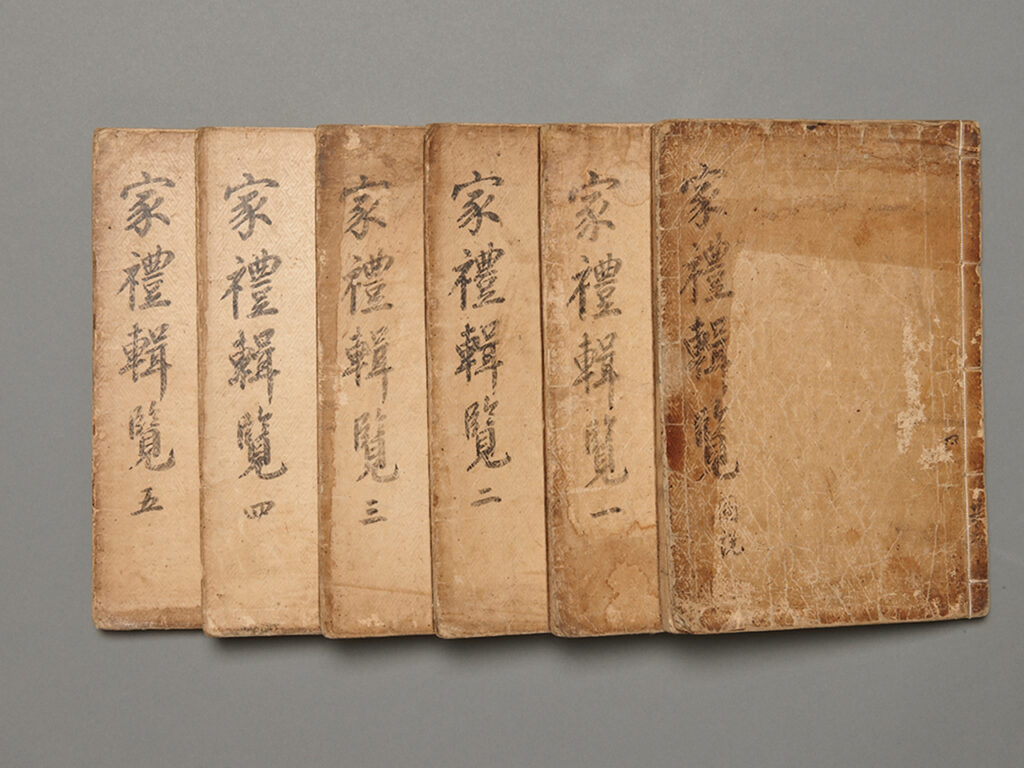 家禮輯覽 圖說
家禮輯覽 一
家禮輯覽 二
家禮輯覽 三
家禮輯覽 四
家禮輯覽 五